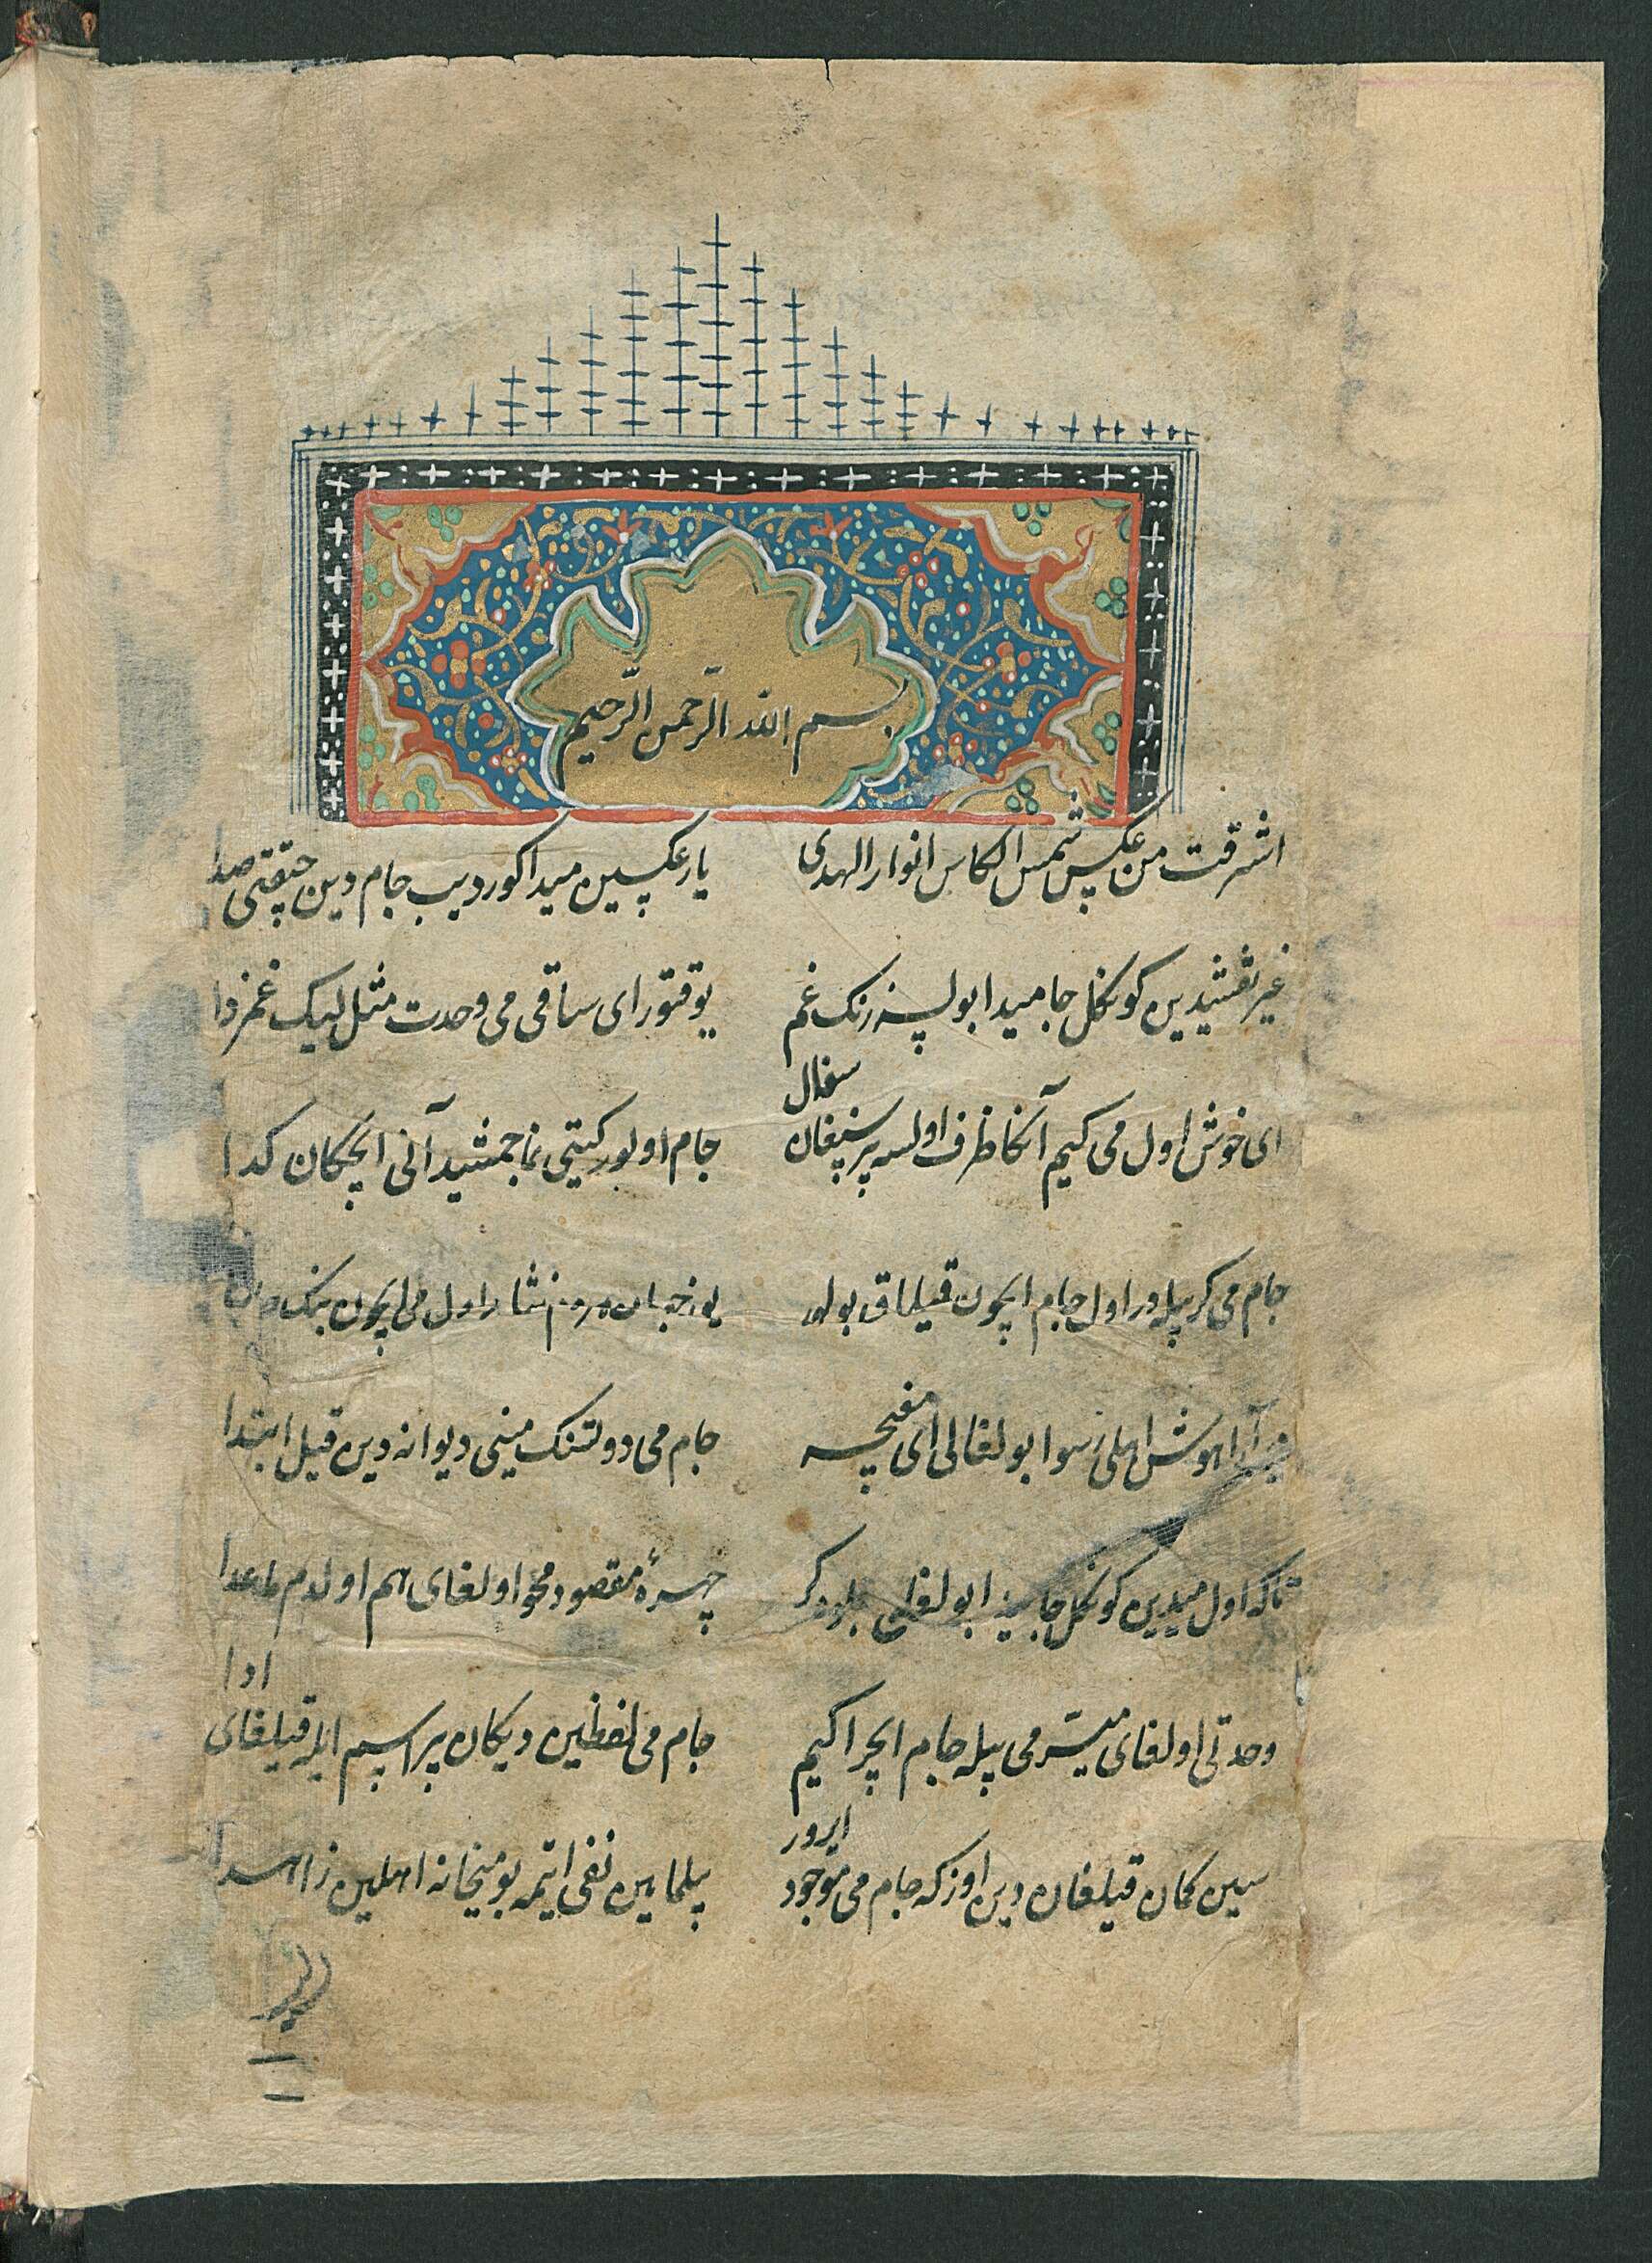 بسم الله الرّحمن الرّحیم
اشرقت من عکس شمس الکاس انوار الهدی یار عکسین میدا کوردیب جام دین چقتی صدا
غیر نقشیدین کونکل جامیدا بولسه زنک غم یوقتور ای ساقی می وحدت مثل لیک غمزدا
ای خوش اول می کیم آنکا ظرف اولسه بر سینغان سفال جام اولور کیتی نما جمشید آنی ایچکان کدا
جام می کر بیله دور اول جام ایچون قیلماق بولور یوز جهان هر دم نثار اول می ایچون مینک
دیر آرا هوش اهلی رسوا بولغالی ای مغبچه جام می دوتسنک مینی دیوانه دین قیل ابتدا
تاکه اول میدین کونکل جامیدا بولغای جلوه کر چهرهٔ مقصود محو اولغای هم اولدم ماعدا
وحدتی اولغای میسّر می بیله جام ایچرا کیم جام می لفظین دیکان بر اسم ایله قیلغای ادا
سین کمان قیلغان دین اوزکه جام می موجود ایرور بیلمایین نفی ایتمه بو میخانه اهلین زاهدا